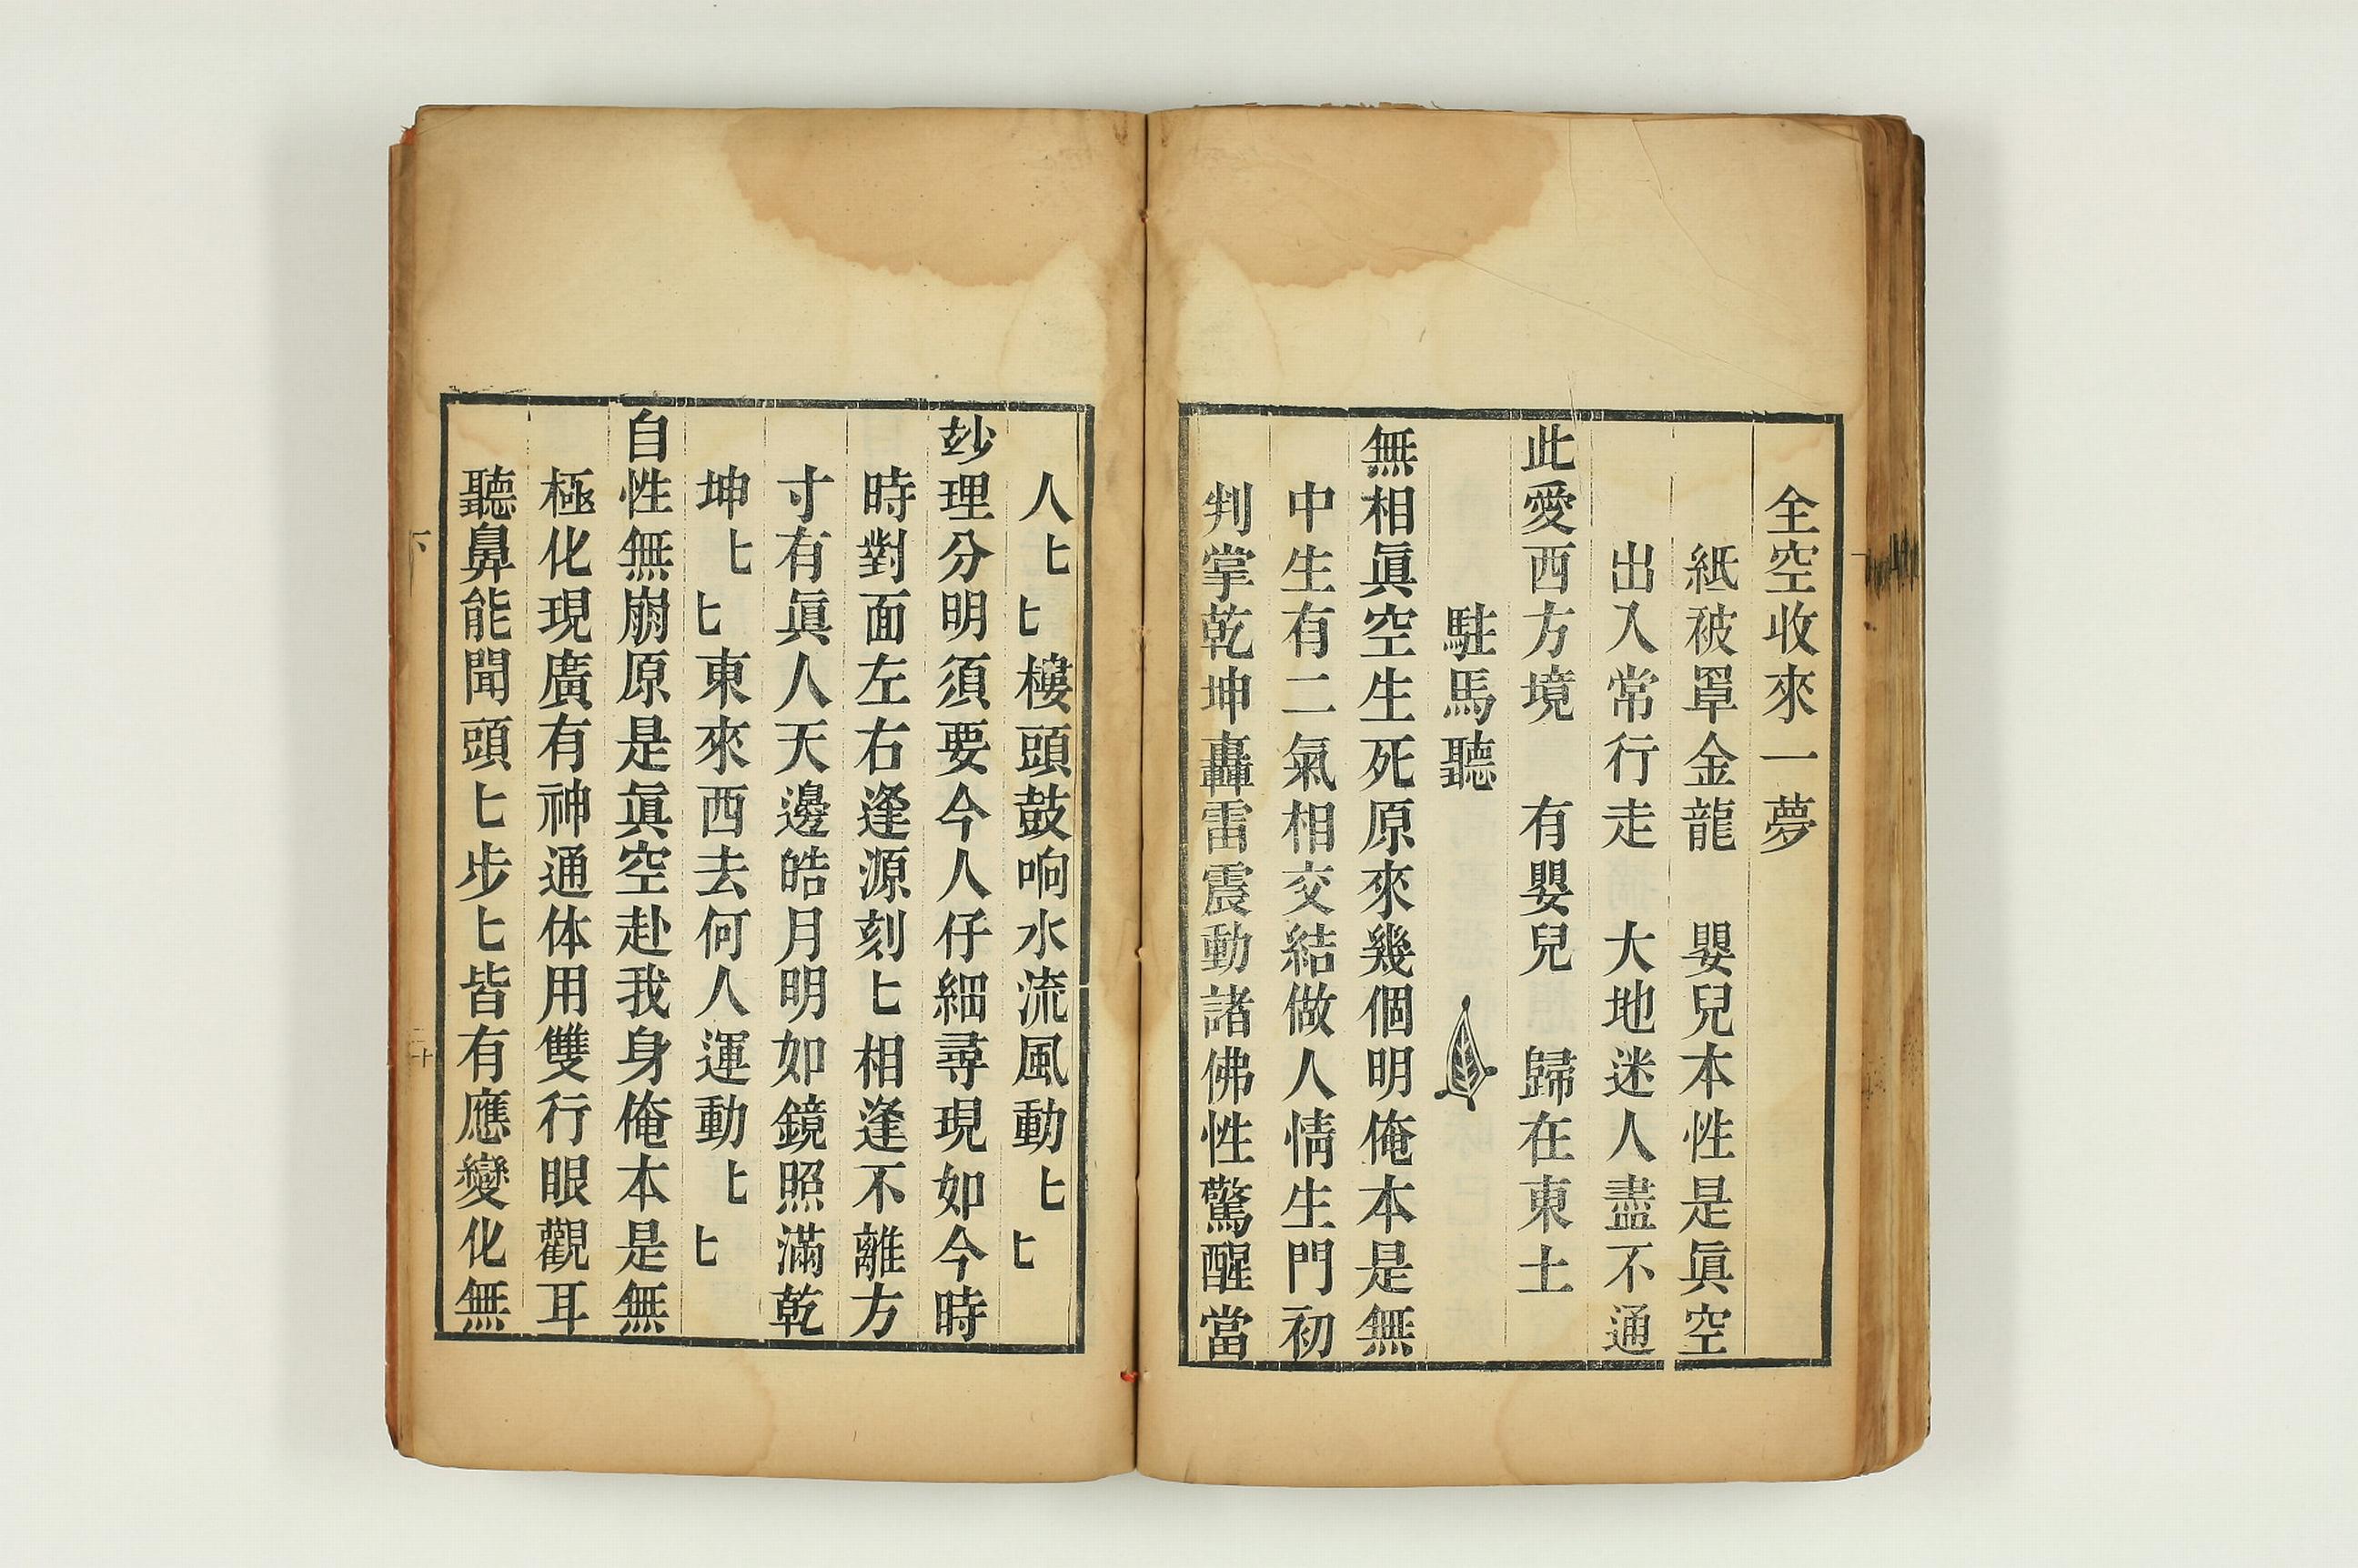 全空收來一夢
紙被罩金龍　嬰兒本性是眞空
出入常行走　大地迷人盡不通
此愛西方境　有嬰兒　歸在東土
駐馬聽
無相眞空生死原來幾個明俺本是無
中生有二氣相交結做人情生門初
判掌乾坤轟雷震動諸佛性驚醒當
人〻〻樓頭鼓响水流風動〻〻
玅理分明須要今人仔細尋現如今時
時對面左右逢源刻〻相逢不離方
寸有眞人天邊皓月明如鏡照滿乾
坤〻〻東來西去何人運動〻〻
自性無崩原是眞空赴我身俺本是無
極化現廣有神通体用雙行眼觀耳
聽鼻能聞頭〻步〻皆有應變化無
下
二十